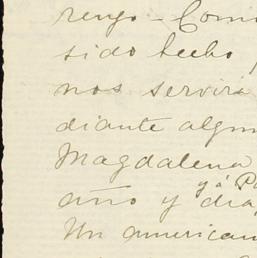 rengo - Comi
sido hecho
nos servirá
diante algun
Magdalena
y á Pa
año y dia
Un american